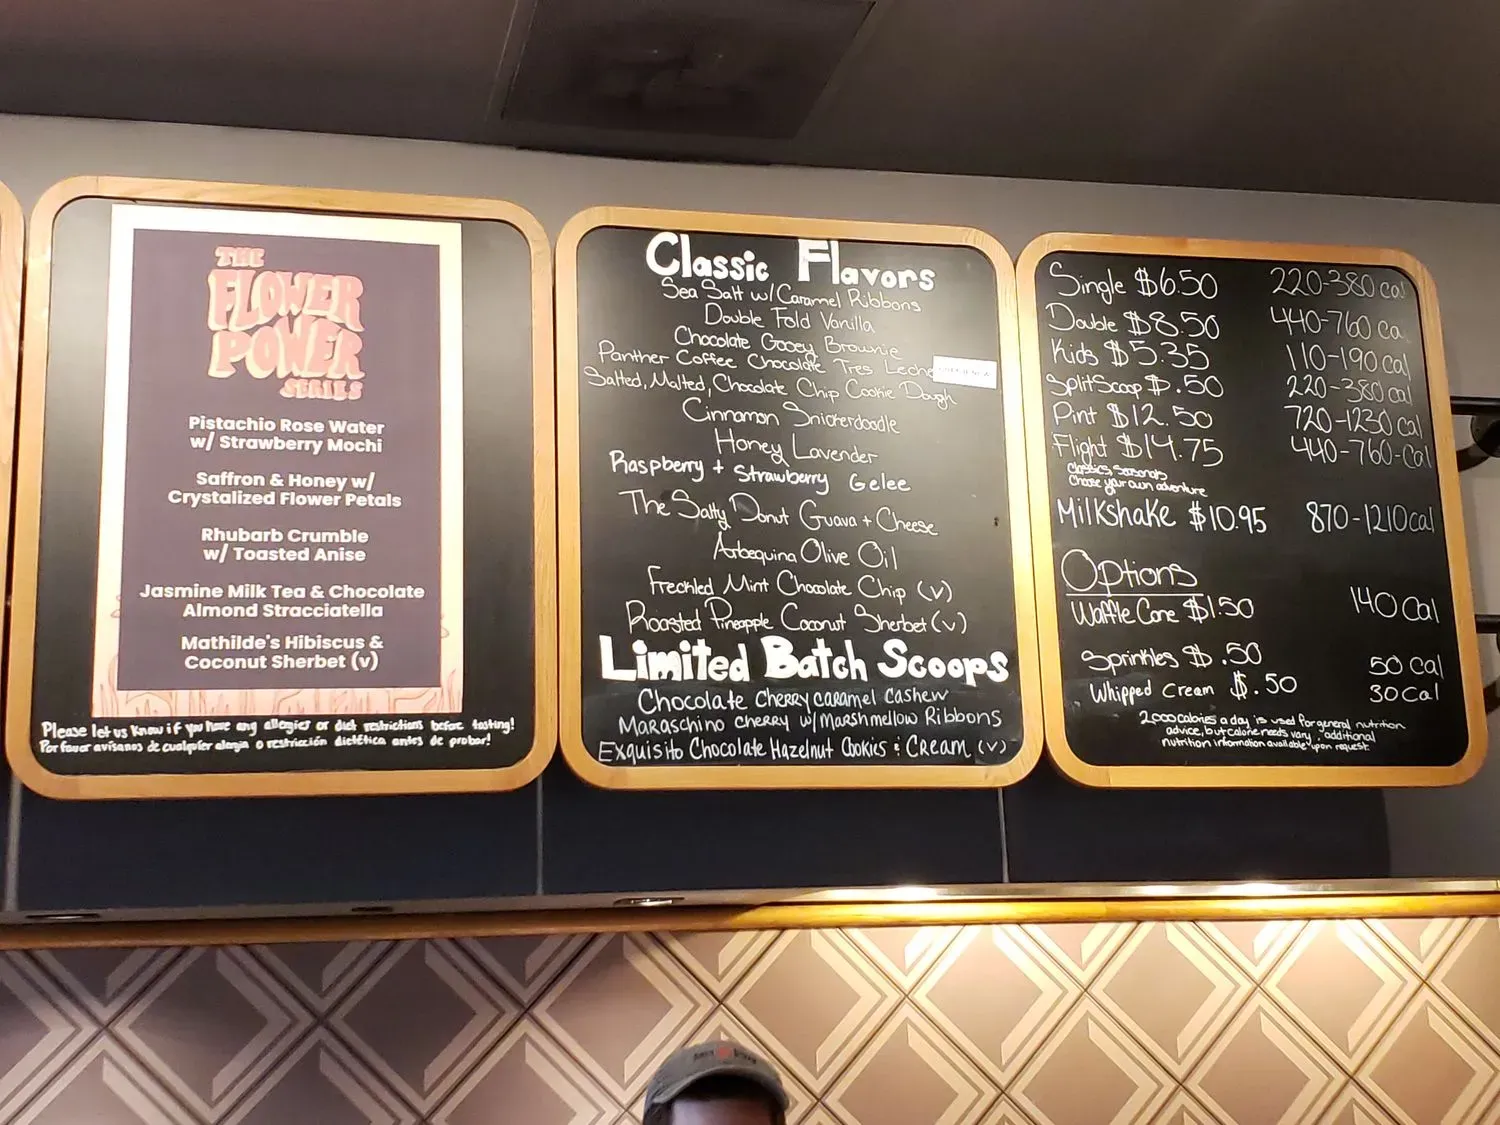 THE
FLOWER
POWER
SERIES
Pistachio Rose Water
w/ Strawberry Mochi
Saffron & Honey w/
Crystalized Flower Petals
Rhubarb Crumble
w/ Toasted Anise
Jasmine Milk Tea & Chocolate
Almond Stracciatella
Mathilde's Hibiscus &
Coconut Sherbet (v)
Please let us know if you have any allergies or diet restrictions before tasting!
Por favor avísanos de cualquier alergia o restricción dietética antes de probar!
Classic Flavors
Sea Salt w/ Caramel Ribbons
Double Fold Vanilla
Chocolate Gooey Brownie
Panther Coffee Chocolate Tres Leche
Salted, Malted, Chocolate Chip Cookie Dough
Cinnamon Snickerdoodle
Honey Lavender
Raspberry + Strawberry Gelee
The Salty Donut Guava + Cheese
Arbequina Olive Oil
Freckled Mint Chocolate Chip (v)
Roasted Pineapple Coconut Sherbet (v)
Limited Batch Scoops
Chocolate Cherry caramel Cashew
Maraschino cherry w/ Marshmellow Ribbons
Exquisito Chocolate Hazelnut Cookies & Cream (v)
Single $6.50 220-380 cal
Double $8.50 440-760 Ca
Kids $5.35 110-190 Cal
Split Scoop $.50 220-380 cal
Pint $12.50 720-1230 Cal
Flight $14.75 440-760-Cal
Classics, Seasonals
Choose your own adventure
Milkshake $10.95 870-1210 cal
Options
Waffle Cone $1.50 140 Cal
Sprinkles $.50 50 Cal
Whipped Cream $.50 30 Cal
2,000 calories a day is used for general nutrition
advice, but calorie needs vary, additional
nutrition information available upon request.